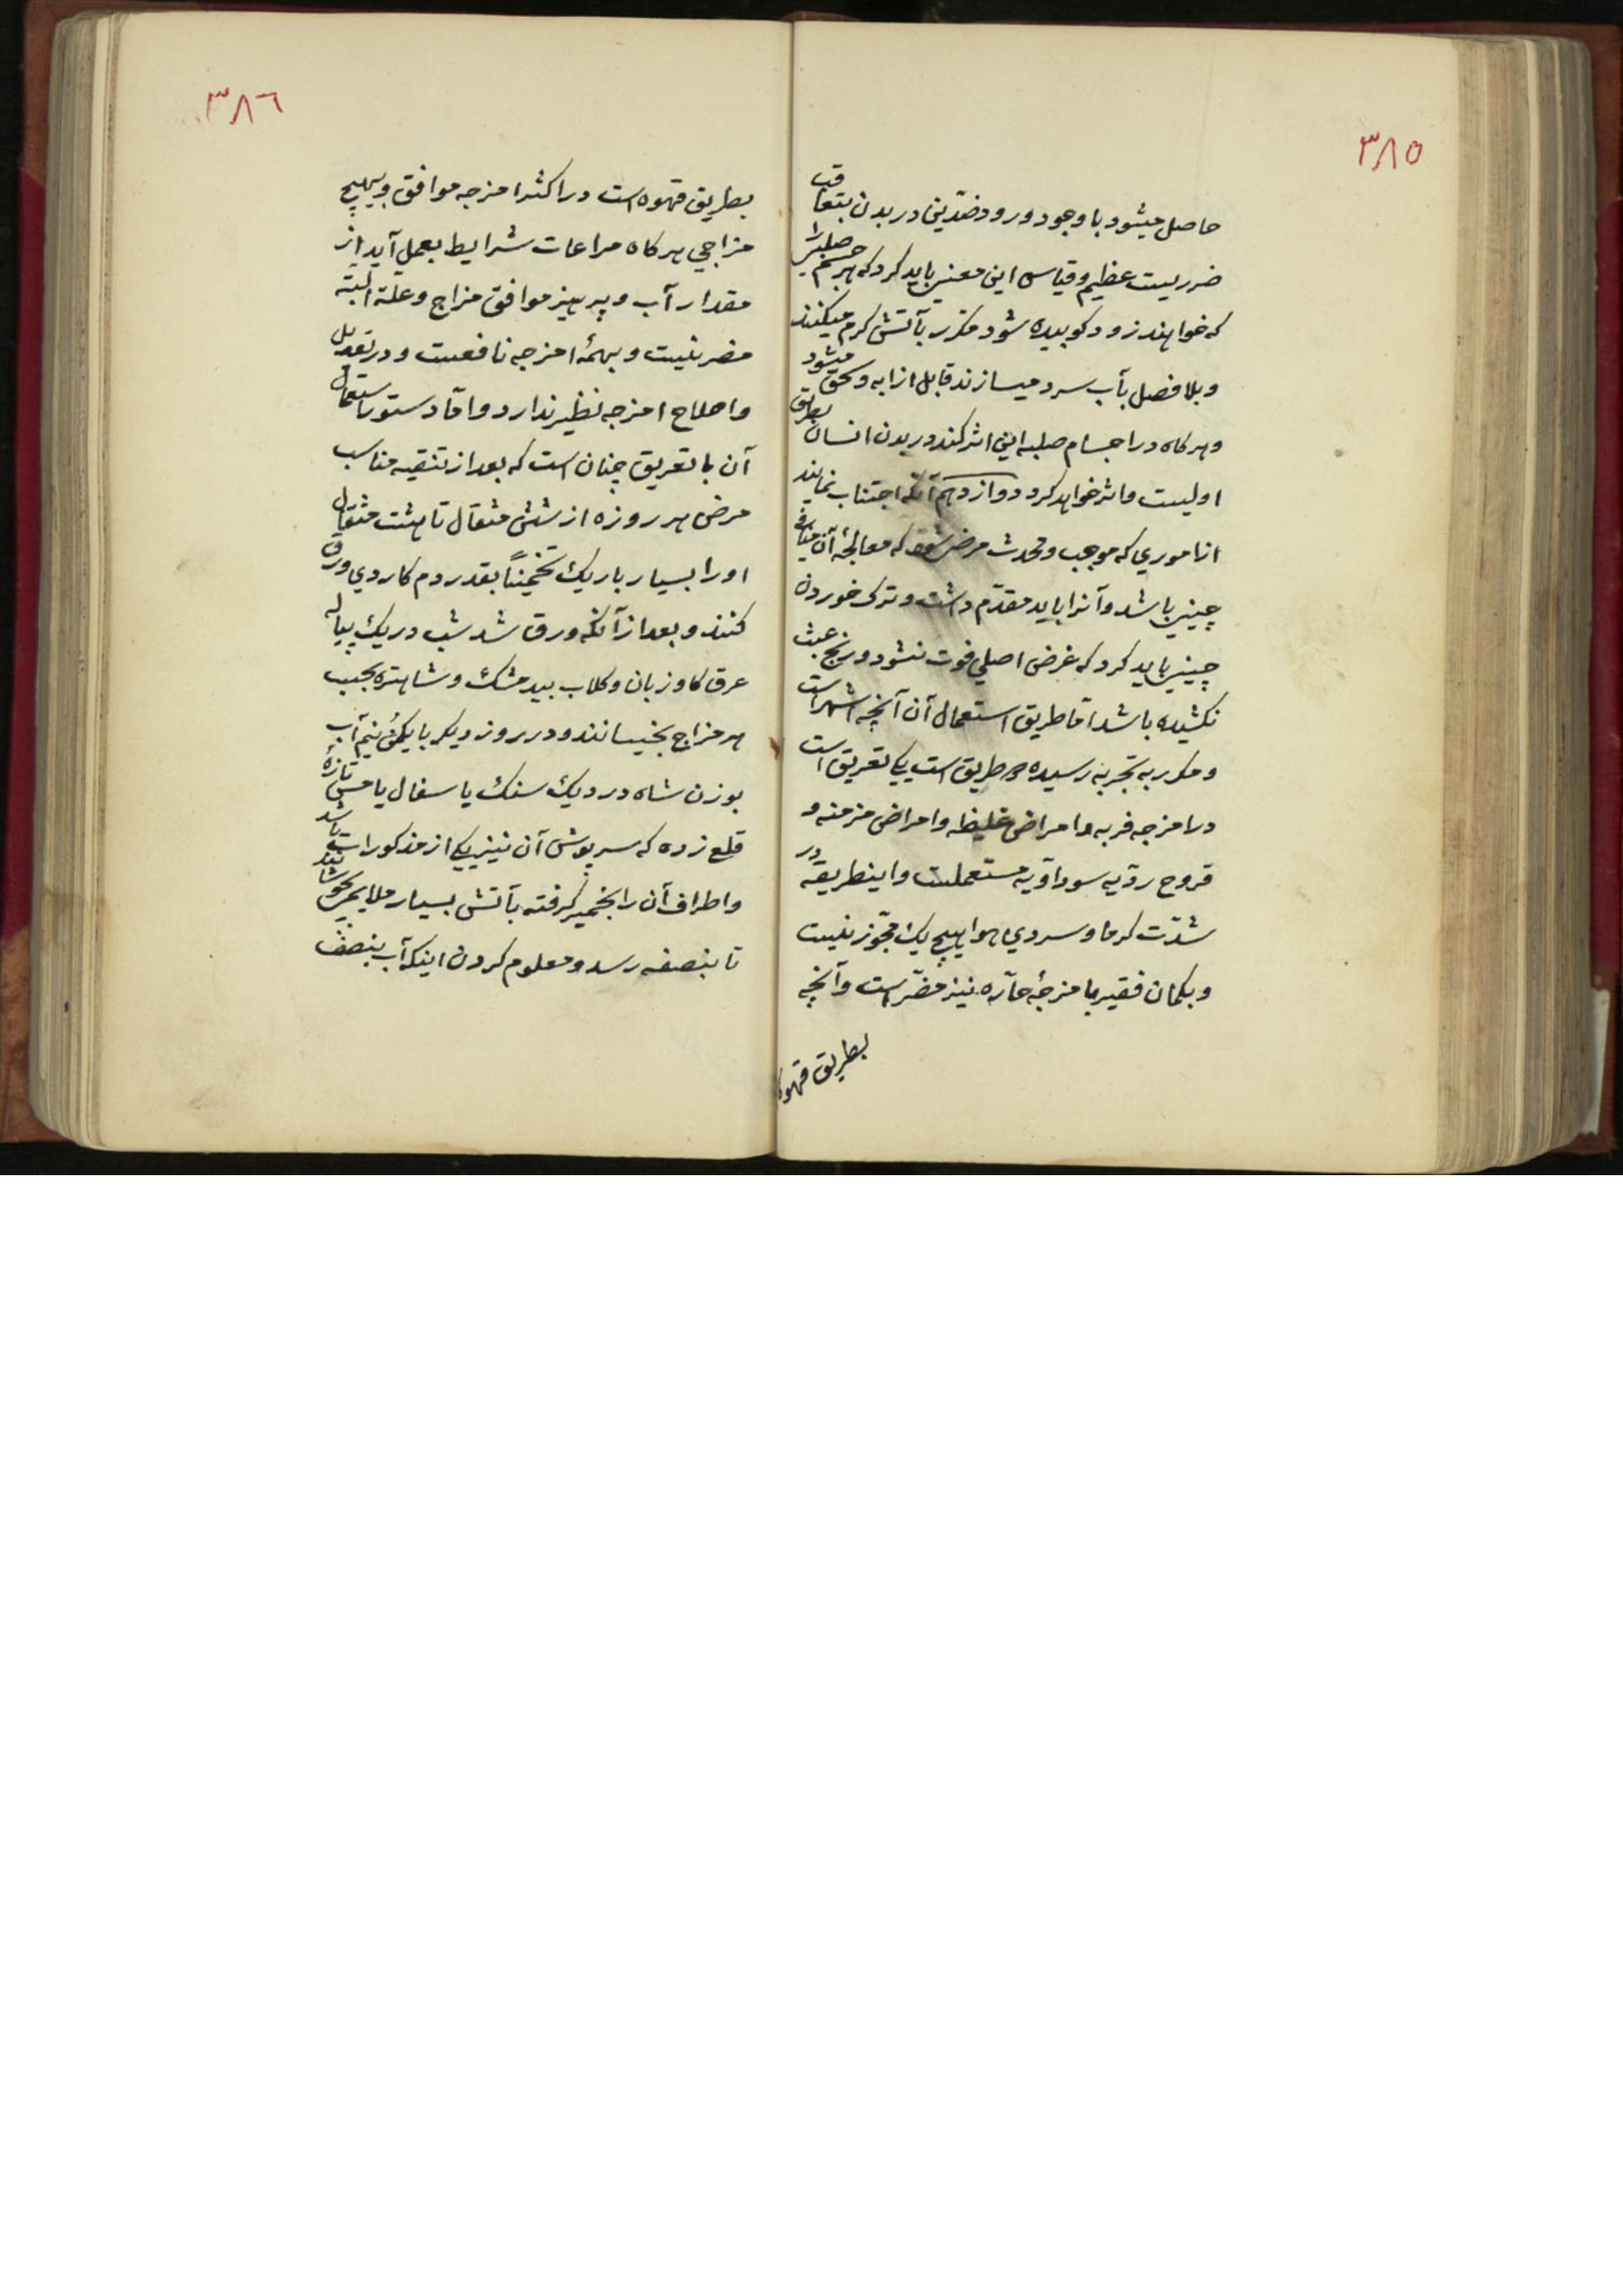 ٣٨٥
حاصل میشود با وجود ورود ضدّین در بدن بتعاقب
ضرریست عظیم و قیاس این معنی باید کرد که هر جسم صلبی را
که خواهند زود کوبیده شود مکرر بآتش کرم میکنند
و بلا فصل بآب سرد میسازند قابل اذابه و سحق میشود
و هرکاه در اجسام صلبه این اثر کند در بدن انسان بطریق
اولیست و اثر خواهد کرد دوازدهم آنکه اجتناب نمایند
از اموری که موجب و محدث مرض شود که معالجۀ آن منافی
چینی باشد و آنرا باید مقدّم داشت و ترک خوردن
چینی باید کرد که غرض اصلی فوت نشود و رنج عبث
نکشیده باشد امّا طریق استعمال آن آنچه اشهر است
و مکرر به تجربه رسیده دو طریق است یکی تعریق است
در امزجه فربه و امراض غلیظه و امراض مزمنه و
قروح ردّیه سوداوّیه مستعملست و اینطریقه در
شدّت کرما و سردی هوا بهیچ یک مجّوز نیست
و بکمان فقیر با مزجۀ حارّه نیز مضّر است و آنچه
بطریق قهوه
٣٨٦
بطریق قهوه است در اکثر امزجه موافق و بهیچ
مزاجی هرکاه مراعات شرایط بعمل آید از
مقدار آب و پرهیز موافق مزاج و علة البته
مضر نیست و بهمۀ امزجه نافعست و در تعدیل
و اصلاح امزجه نظیر ندارد و امّا دستور استعمال
آن با تعریق چنان است که بعد از تنقیه مناسب
مرض هر روزه از شش مثقال تا هشت مثقال
او را بسیار باریک تخمیناً بقدر دم کاردی ورق
کنند و بعد از آنکه ورق شد شب در یک پیاله
عرق کاو زبان و کلاب بیدمشک و شاهتره بحسب
هر مزاج بخیسانند و در روز دیکر با یکمن نیم آب
بوزن شاه در دیک سنک یا سفال یا مس تازه
قلع زده که سرپوش آن نیز یکی از مذکورات باشد
و اطراف آن را بخمیر کرفته بآتش بسیار ملایم بجوشانند
تا بنصفه رسد و معلوم کردن اینکه آب بنصف